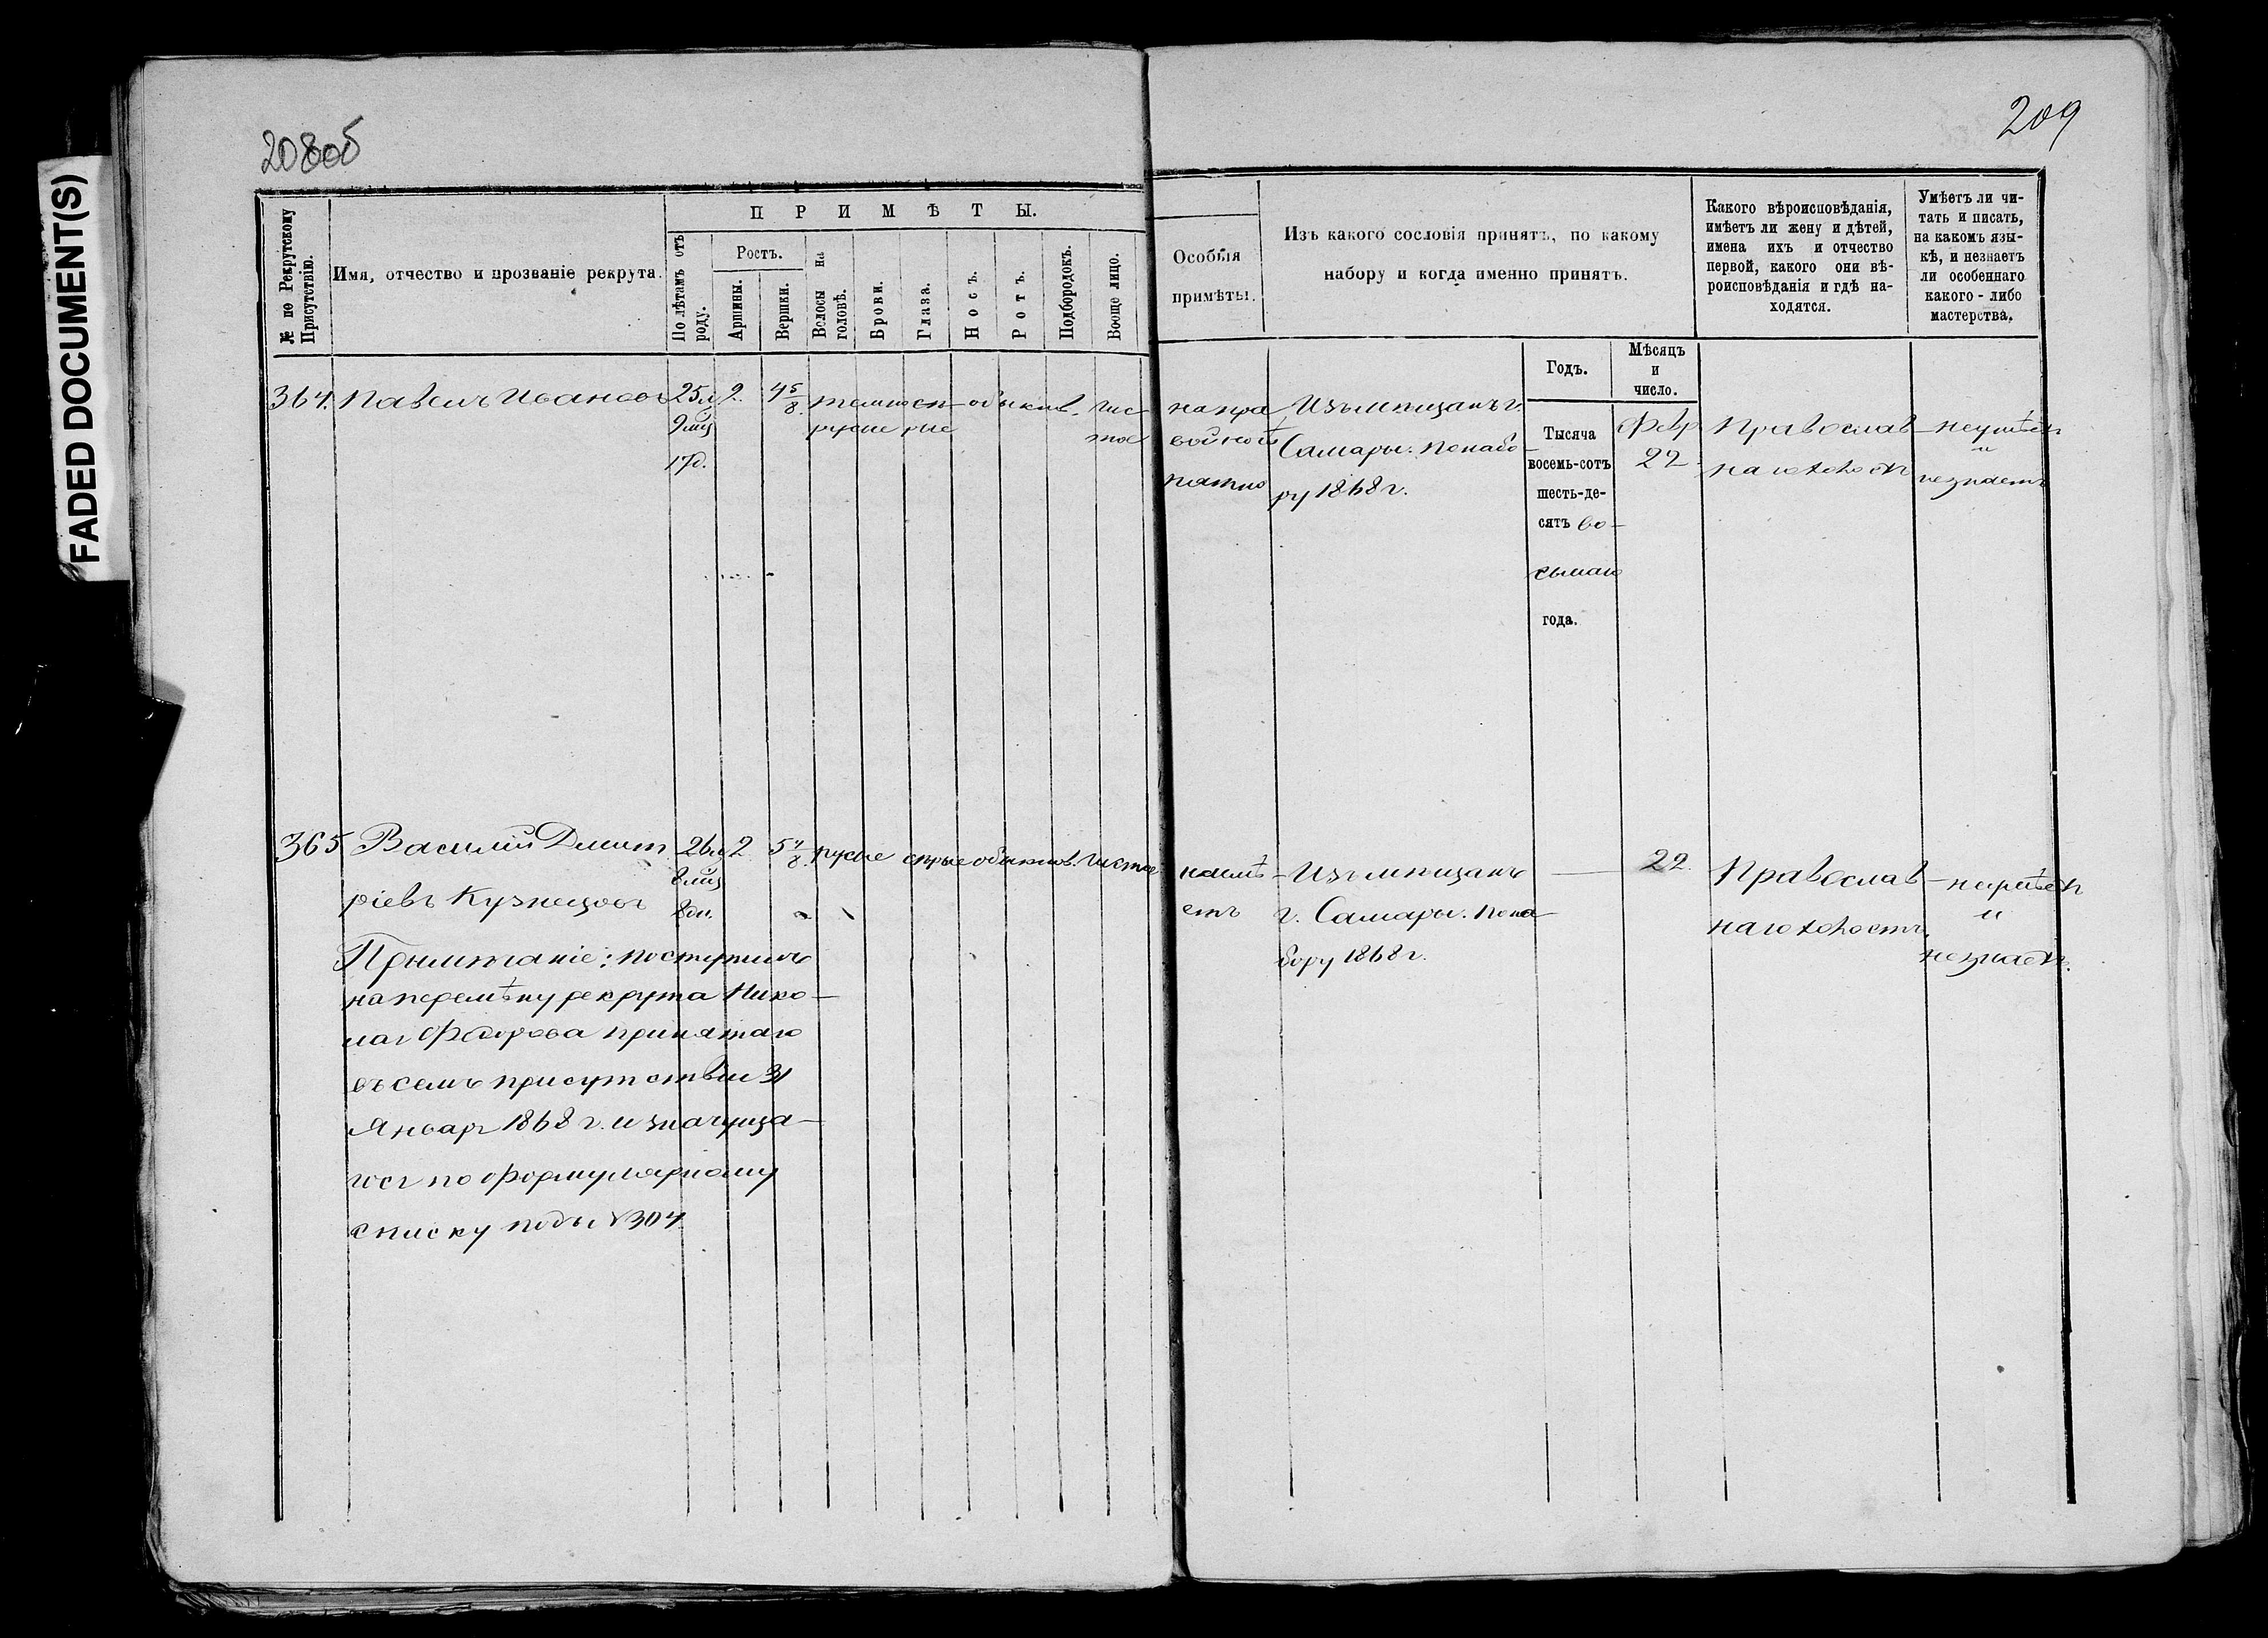 FADED DOCUMENT(S)
208об
209
№ по Рекрутскому Присутствію.
Имя, отчество и прозваніе рекрута.
ПРИМѢТЫ.
По лѣтамъ отъ роду.
Ростъ.
Аршины.
Вершки.
Волосы на головѣ.
Брови.
Глаза.
Носъ.
Ротъ.
Подбородокъ.
Вооще лицо.
Особыя
примѣты.
Изъ какого сословія принятъ, по какому
набору и когда именно принятъ.
Какого вѣроисповѣданія,
имѣетъ ли жену и дѣтей,
имена ихъ и отчество
первой, какого они вѣ-
роисповѣданія и гдѣ на-
ходятся.
Умѣетъ ли чи-
тать и писать,
на какомъ язы-
кѣ, и незнаетъ
ли особеннаго
какого-либо
мастерства.
Годъ.
Мѣсяцъ
и
число.
364. Павелъ Ивановъ 25 л 2 4 5/8 темно сѣ- обыкнв. чис
9 мц русые рые тое
17 д.
на пра
вой ногѣ
пятно
Изъ мѣщанъ г.
Самары. По набо-
ру 1868 г.
Тысяча
восемь-сотъ
шесть-де-
сятъ во-
сьмаго
года.
Фвр
22.
Православ-
наго холостъ
неумѣетъ
и
незнаетъ
365 Василій Димит 26 л 2 5 4/8 русые сѣрые обыкнов. чистое
ріевъ Кузнецовъ 8 мц
8 дн.
Примѣчаніе: поступилъ
на перемѣну рекрута Нико-
лая Федорова принятаго
въ семъ присутствіи 31
Января 1868 г. и значуща-
гося по формулярному
списку подъ №304
неимѣ-
етъ
Изъ мѣщанъ
г. Самары. По на-
бору 1868 г.
— 22.
Православ-
наго холостъ.
неумѣетъ
и
незнаетъ.